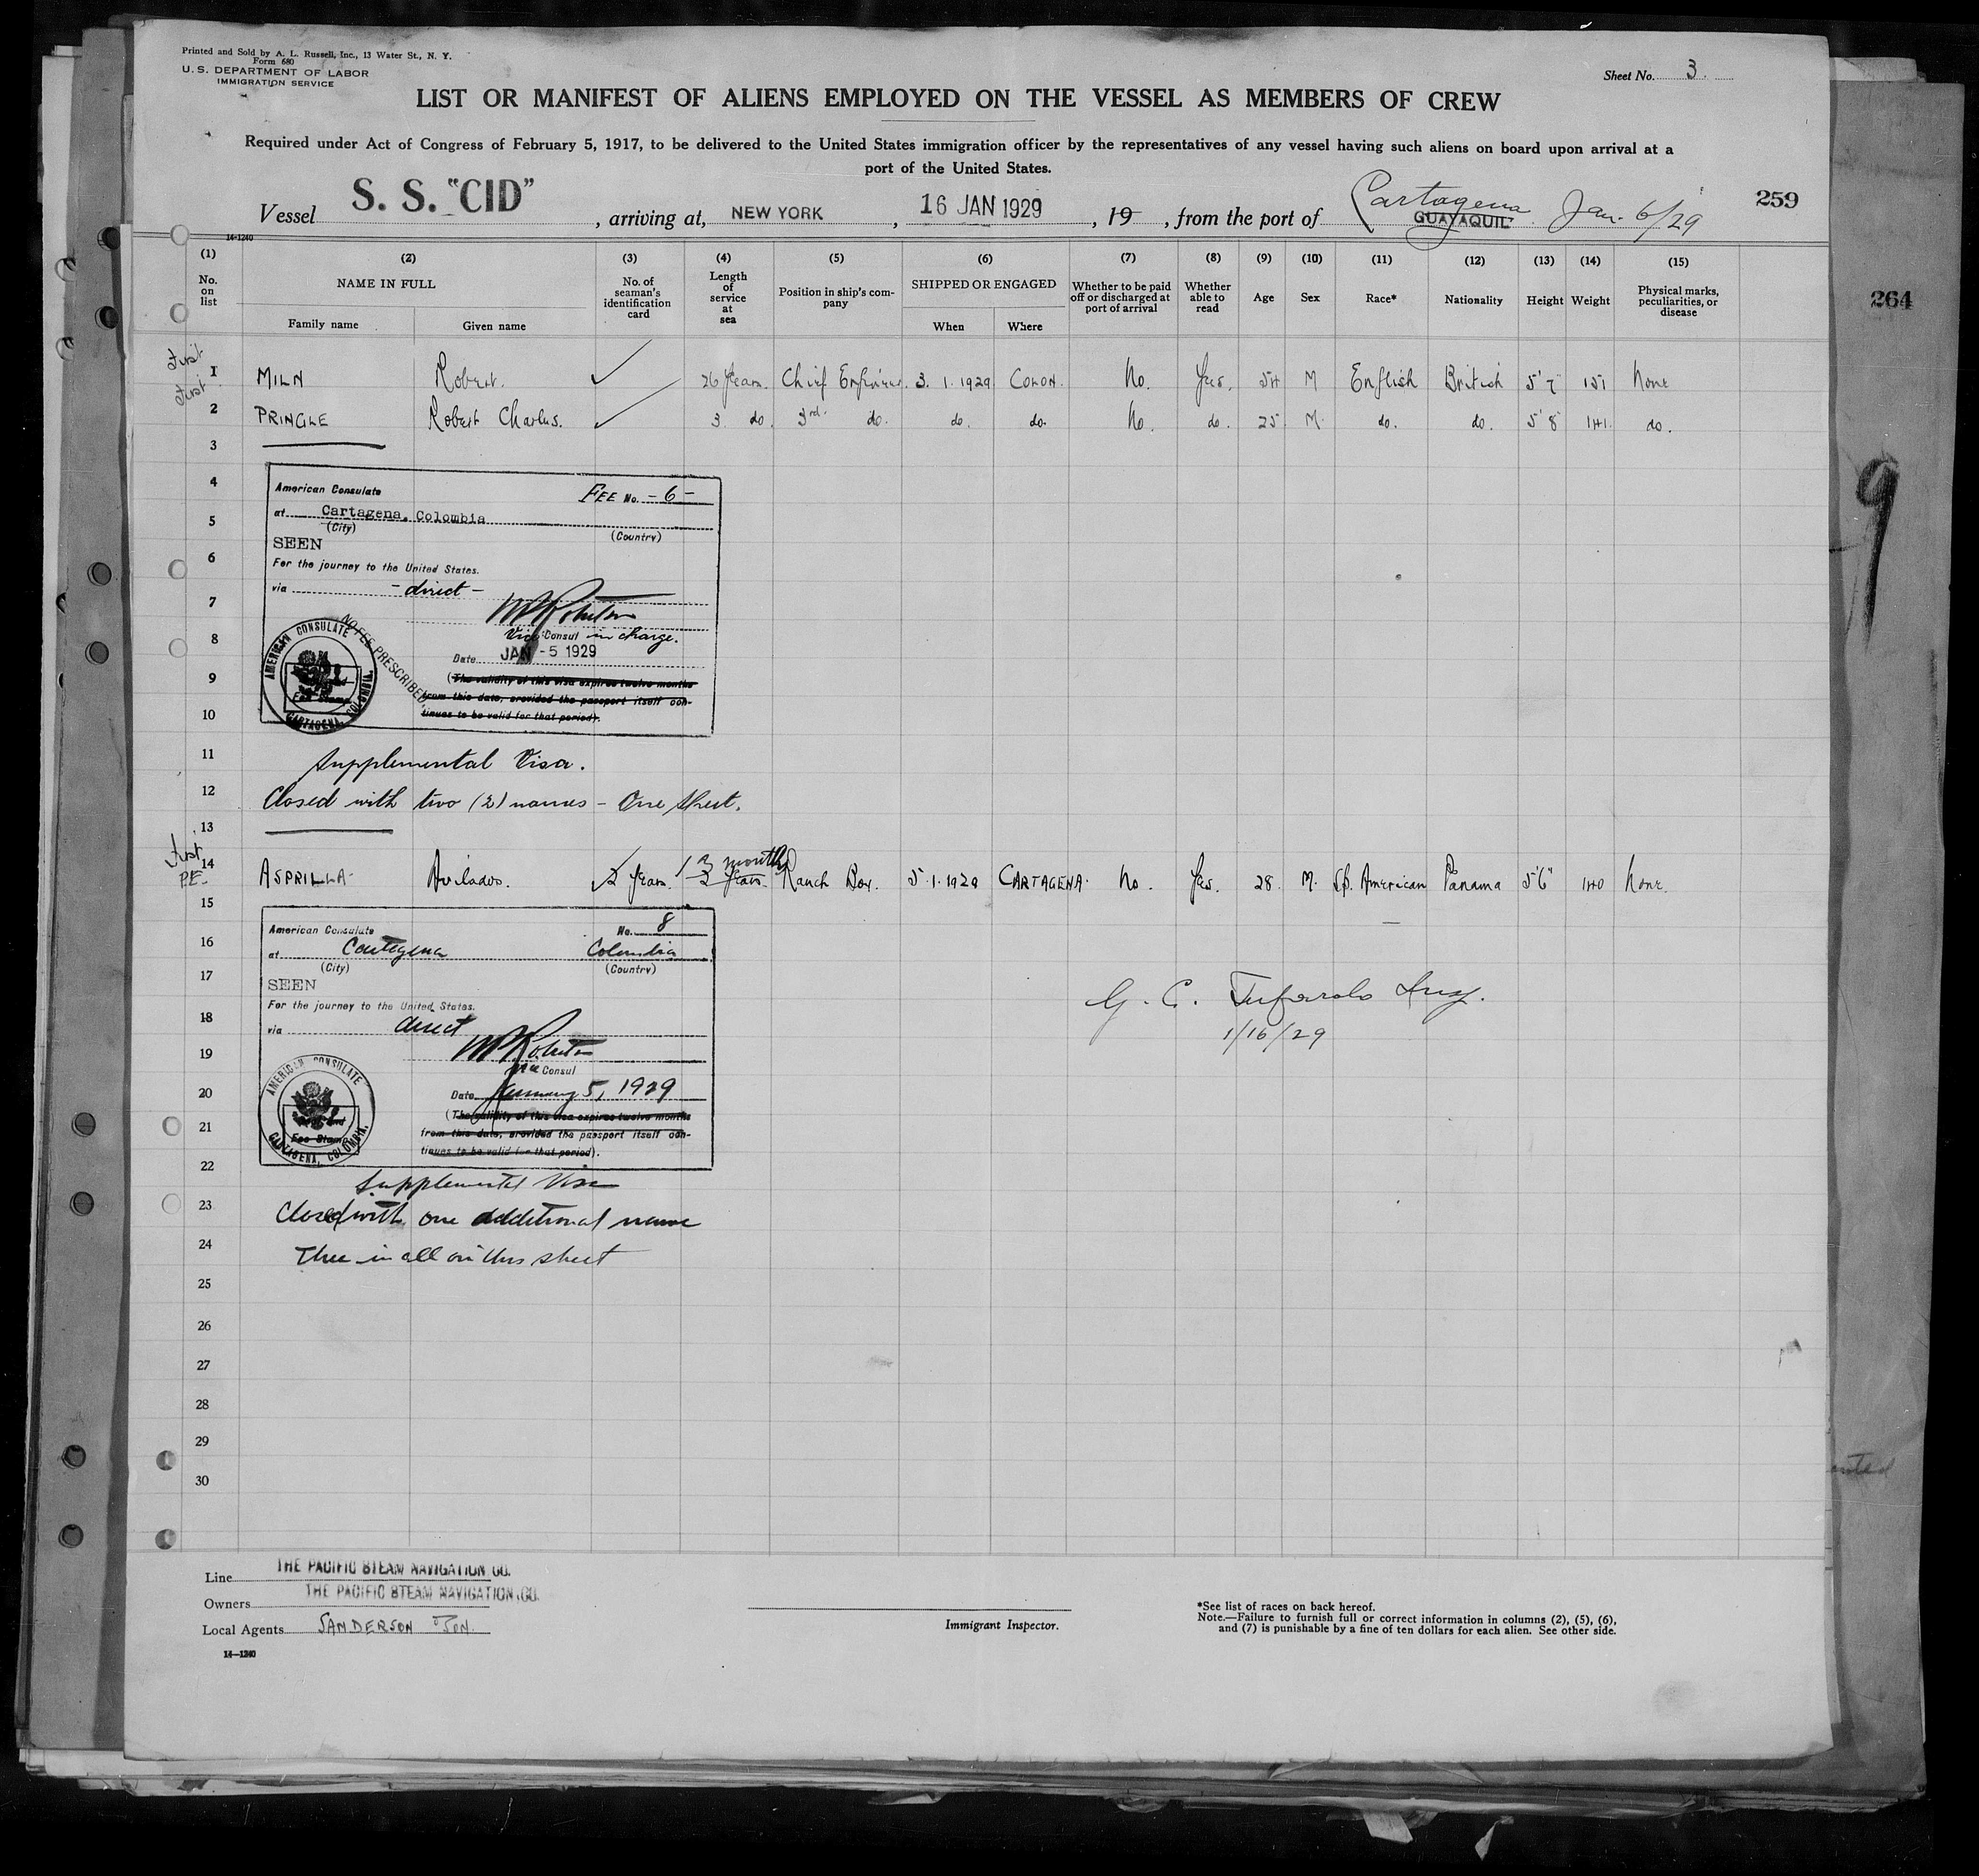 Printed and Sold by A. L. Russell, Inc., 13 Water St., N. Y.
Form 680
U. S. DEPARTMENT OF LABOR
IMMIGRATION SERVICE
Sheet No. 3.
LIST OR MANIFEST OF ALIENS EMPLOYED ON THE VESSEL AS MEMBERS OF CREW
Required under Act of Congress of February 5, 1917, to be delivered to the United States immigration officer by the representatives of any vessel having such aliens on board upon arrival at a
port of the United States.
Vessel S. S. "CID", arriving at, NEW YORK, 16 JAN 1929, 19, from the port of GUAYAQUIL Cartagena Jan. 6/29
259
264
14-1240
(1) (2) (3) (4) (5) (6) (7) (8) (9) (10) (11) (12) (13) (14) (15)
No. on list
NAME IN FULL
Family name
Given name
No. of seaman's identification card
Length of service at sea
Position in ship's company
SHIPPED OR ENGAGED
When
Where
Whether to be paid off or discharged at port of arrival
Whether able to read
Age
Sex
Race*
Nationality
Height
Weight
Physical marks, peculiarities, or disease
First 1 MILN Robert. 26 Years. Chief Engineer 3. 1. 1929 COLON. No. Yes. 54 M English British 5'7" 151 None
First 2 PRINGLE Robert Charles. 3 do. 3rd do. do. do. No. do. 25 M. do. do. 5'8 141. do.
3
4
American Consulate FEE No. -6-
5
at Cartagena, Colombia
(City) (Country)
SEEN
6
For the journey to the United States.
via -direct-
7
8
Vice Consul in charge.
Date JAN -5 1929
9
(The validity of this visa expires twelve months
from this date, provided the passport itself con-
10
tinues to be valid for that period).
NO FEE PRESCRIBED
AMERICAN CONSULATE
CARTAGENA, COLOMBIA
Fee Stamp
11
Supplemental Visa.
12
Closed with two (2) names - One sheet.
13
First P.E. 14 ASPRILLA 2 Years. 3 months 2 Years. Ranch Boy. 5. 1. 1929 CARTAGENA. No. Yes. 28. M. Sp. American Panama 5'6" 140 None.
15
American Consulate No. 8
16
at Cartagena Colombia
(City) (Country)
17
SEEN
For the journey to the United States.
18
via direct
19
Vice Consul
20
Date January 5, 1929
(The validity of this visa expires twelve months
21
from this date, provided the passport itself con-
tinues to be valid for that period).
AMERICAN CONSULATE
CARTAGENA, COLOMBIA.
Fee Stamp
G. C. Tufarolo Insp.
1/16/29
22
Supplemental Visa
23
Closed with one additional name
24
Three in all on this sheet
25
26
27
28
29
30
9
Line THE PACIFIC STEAM NAVIGATION CO.
Owners THE PACIFIC STEAM NAVIGATION CO.
Local Agents SANDERSON & SON.
14-1240
Immigrant Inspector.
*See list of races on back hereof.
Note.—Failure to furnish full or correct information in columns (2), (5), (6),
and (7) is punishable by a fine of ten dollars for each alien. See other side.